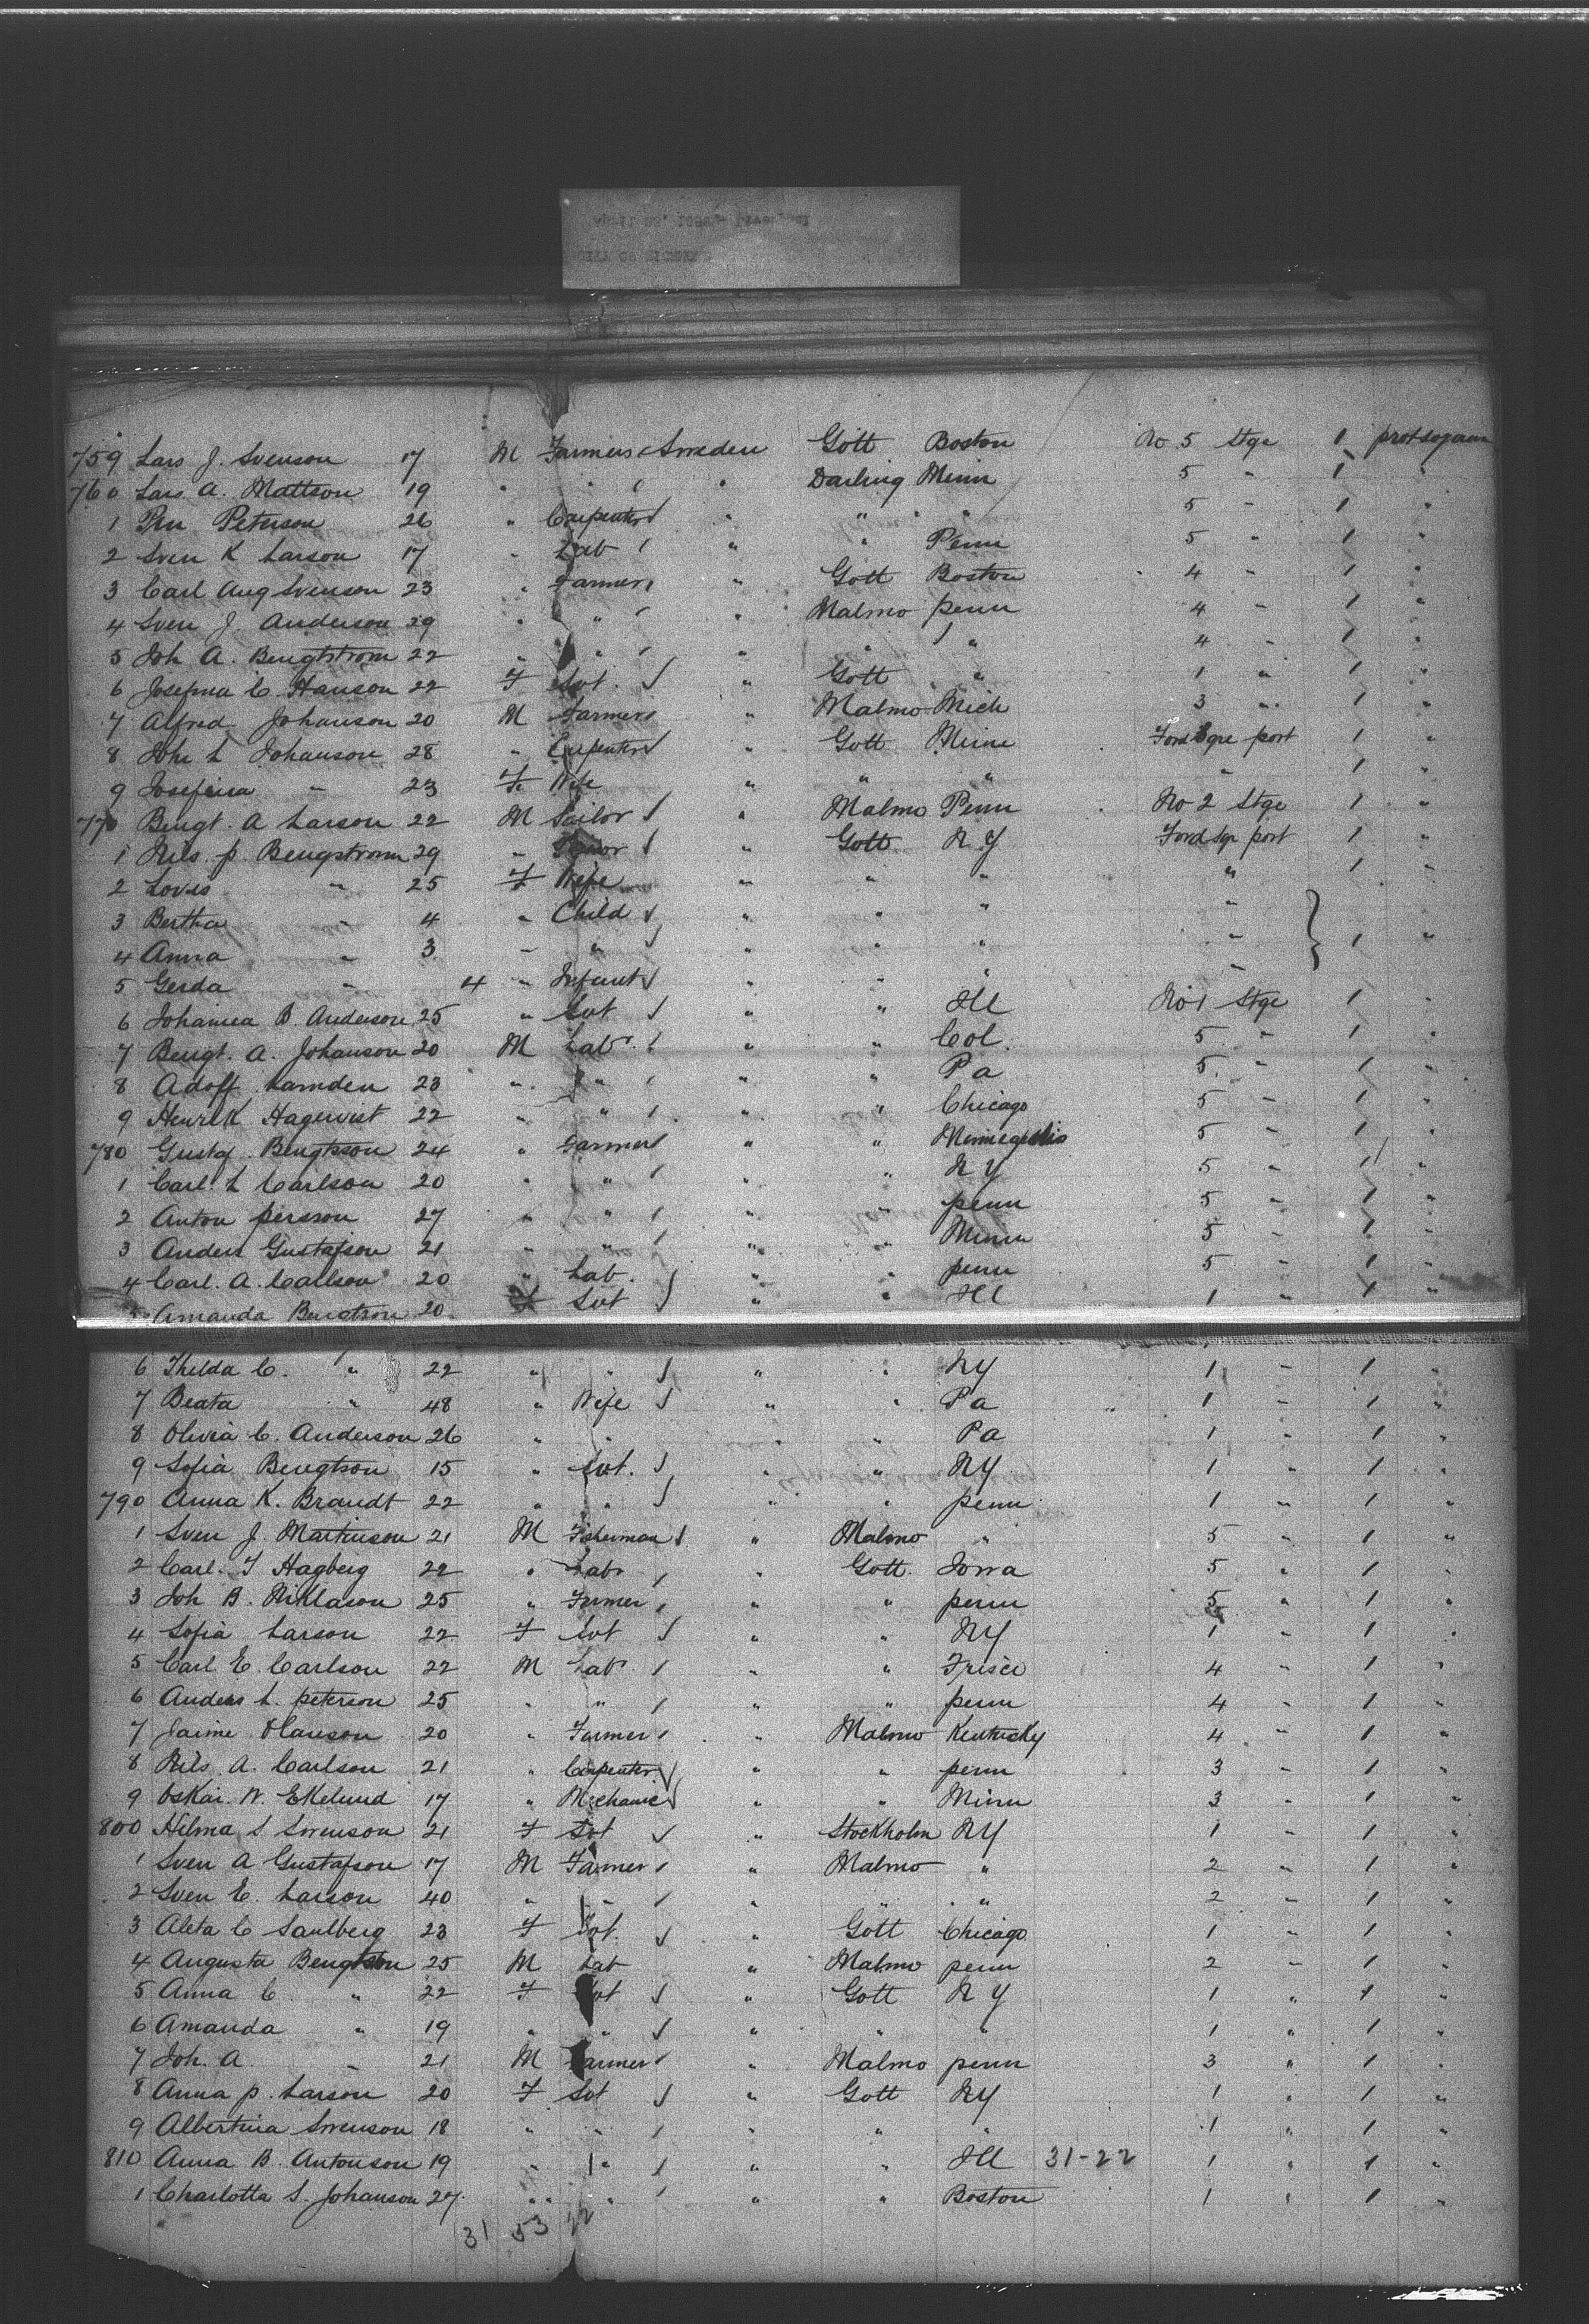 759 Lars J. Svenson 17 M Farmers Sweden Gott Boston No 5 Stge 1 protsojourn
760 Lars A. Mattson 19 " " " Darling Minn 5 " 1 "
1 Per Peterson 26 " Carpenter " " " 5 " 1 "
2 Sven K Larson 17 " Lab " " Penn 5 " 1 "
3 Carl Aug Svenson 23 " Farmer " Gott Boston 4 " 1 "
4 Sven J. Anderson 29 " " " Malmo penn 4 " 1 "
5 Joh A. Bengtstrom 22 " " " " " 4 " 1 "
6 Josefina C. Hanson 22 F Svt. " Gott " 1 " 1 "
7 Alfred Johanson 20 M Farmer " Malmo Mich 3 " 1 "
8 Joh L Johanson 28 " Carpenter " Gott Minn Ford Sgre port 1 "
9 Josefina " 23 F Wife " " " " 1 "
770 Bengt. A Larson 22 M Sailor " Malmo Penn No 2 Stge 1 "
1 Nils. p. Bengstrom 29 " " Gott N Y Ford Sgr port 1 "
2 Lovis " 25 F Wife " " " " 1 "
3 Bertha " 4 " Child " " " "
4 Anna " 3 " " " " " " 1 "
5 Gerda " 4 " Infant " " " "
6 Johanna B. Anderson 25 " Svt " " Ill No 1 Stge 1 "
7 Bengt. A. Johanson 20 M Lab. " " Col. 5 " 1 "
8 Adoff Lamden 23 " " " " Pa 5 " 1 "
9 Henrik Hagervist 22 " " " " Chicago 5 " 1 "
780 Gustaf Bengtsson 24 " Farmer " " Minneapolis 5 " 1 "
1 Carl. L Carlson 20 " " " " N Y 5 " 1 "
2 Anton persson 27 " " " " penn 5 " 1 "
3 Anders Gustafson 21 " " " " Minn 5 " 1 "
4 Carl. A. Carlson 20 " Lab. " " penn 5 " 1 "
5 Amanda Bengtson 20 F Svt " " Ill 1 " 1 "
6 Thilda C. " 22 " " " " NY 1 " 1 "
7 Beata " 48 " Wife " " Pa 1 " 1 "
8 Olivia C. Anderson 26 " " " " Pa 1 " 1 "
9 Sofia Bengtson 15 " Svt. " " NY 1 " 1 "
790 Anna K. Brandt 22 " " " " penn 1 " 1 "
1 Sven J. Martinson 21 M Fisherman " Malmo " 5 " 1 "
2 Carl. T Hagberg 22 " Lab " Gott. Iowa 5 " 1 "
3 Joh B. Niklason 25 " Farmer " " penn 5 " 1 "
4 Sofia Larson 22 F Svt " " NY 1 " 1 "
5 Carl E. Carlson 22 M Lab. " " Frisco 4 " 1 "
6 Anders L. peterson 25 " " " " penn 4 " 1 "
7 Jaime 20 " Farmer " Malmo Kentucky 4 " 1 "
8 Nils A. Carlson 21 " Carpenter " " penn 3 " 1 "
9 Oskar. W. Ekelund 17 " Mechanic " " Minn 3 " 1 "
800 Hilma S Svenson 21 F Svt " Stockholm NY 1 " 1 "
1 Sven A Gustafson 17 M Farmer " Malmo " 2 " 1 "
2 Sven E. Larson 40 " " " " " 2 " 1 "
3 Aleta C Saulberg 23 F Svt. " Gott Chicago 1 " 1 "
4 Augusta Bengtson 25 M Lab " Malmo penn 2 " 1 "
5 Anna C. " 22 F Svt " Gott N Y 1 " 1 "
6 Amanda " 19 " " " " " 1 " 1 "
7 Joh. A. " 21 M Farmer " Malmo penn 3 " 1 "
8 Anna p. Larson 20 F Svt " Gott NY 1 " 1 "
9 Albertina Svenson 18 " " " " " 1 " 1 "
810 Anna B. Antonson 19 " " " " Ill 31-22 1 " 1 "
1 Charlotta S. Johanson 27 " " " " Boston 1 " 1 "
31 53